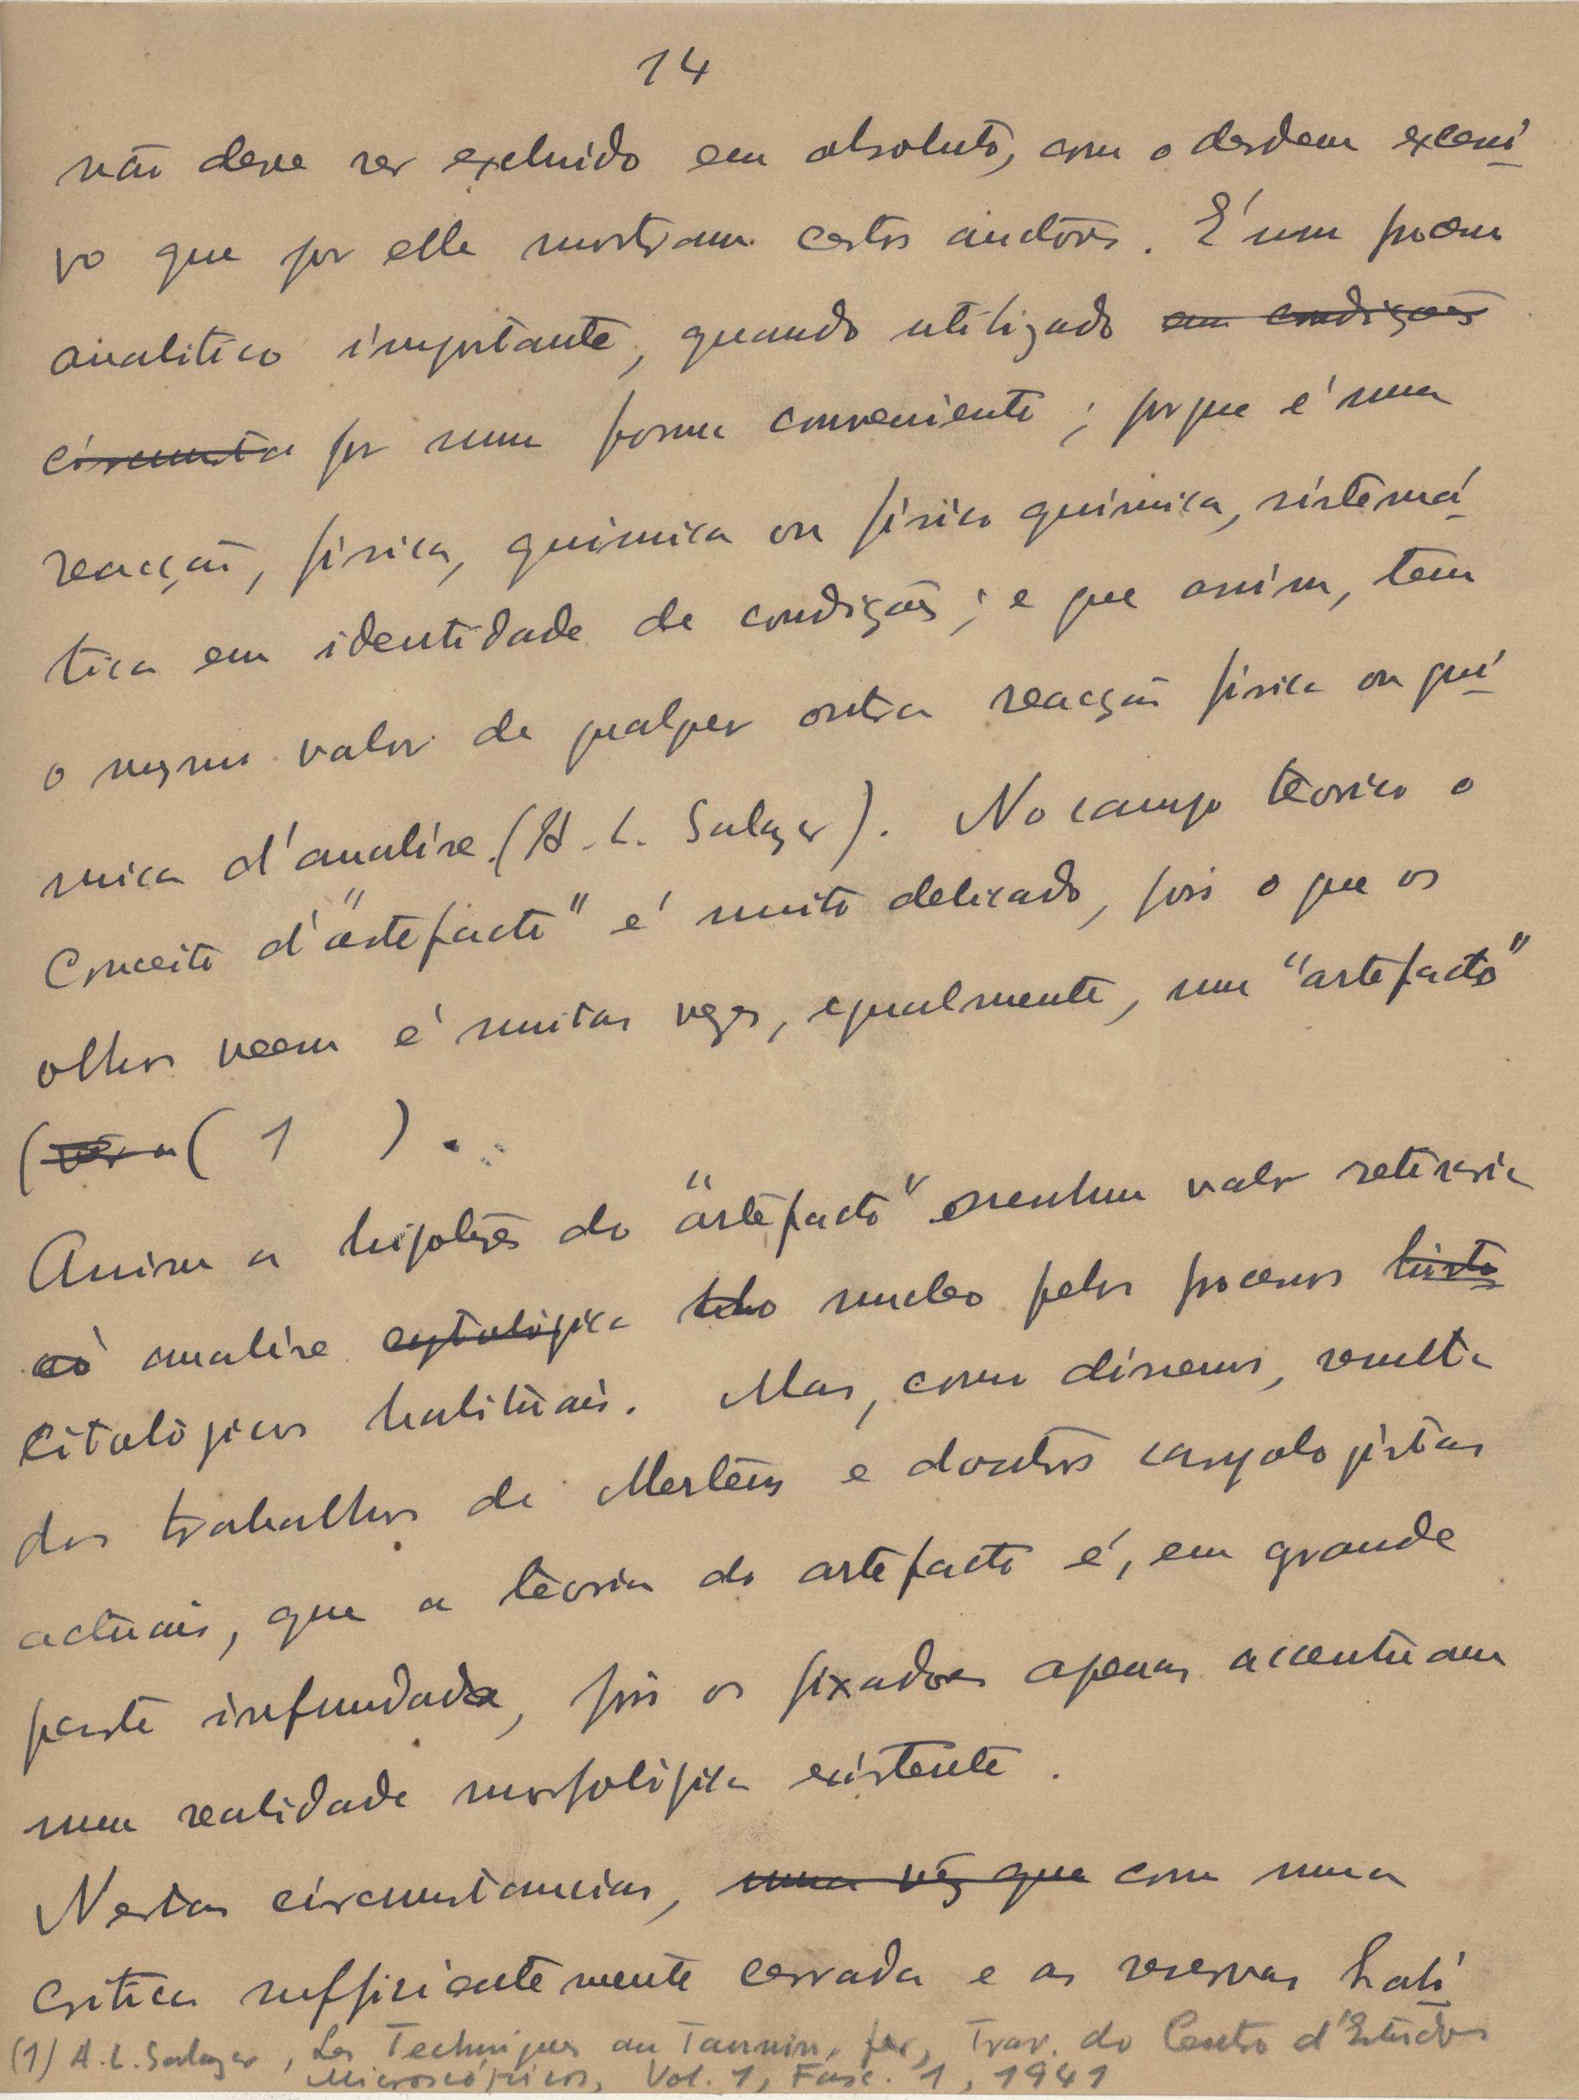 14
não deve ser excluido em absoluto, com o desdem excessi
vo que por elle mostram certos auctores. É um processo
analitico importante, quando utilizado em condições
circumsta por uma forma conveniente; porque é uma
reacção, fisica, quimica ou fisico quimica, sistemá
tica em identidade de condições; e que assim, tem
o mesmo valor de qualquer outra reacção fisica ou quí
mica d'analise. (A. L. Salazar). No campo teorico o
Conceito d'"artefacto" é muito delicado, pois o que os
olhos veem é muitas vezes, egualmente, um "artefacto"
( (1).
Assim a hipotese do "artefacto" nenhum valor retiraria
aò analise cytologica do nucleo pelos processos histo
citològicos habituais. Mas, como dissemos, resulta
dos trabalhos de Mertens e doutros caryologistas
actuais, que a teoria do artefacto é, em grande
parte infundada, pois os fixadores apenas accentuam
uma realidade morfològica existente.
Nestas circumstancias, uma vêz que com uma
critica sufficientemente cerrada e as reservas habi
(1) A. L. Salazar, Les Techniques au Tannin, fer, Trav. do Centro d'Estudos
Microscópicos, Vol. 1, Fasc. 1, 1941